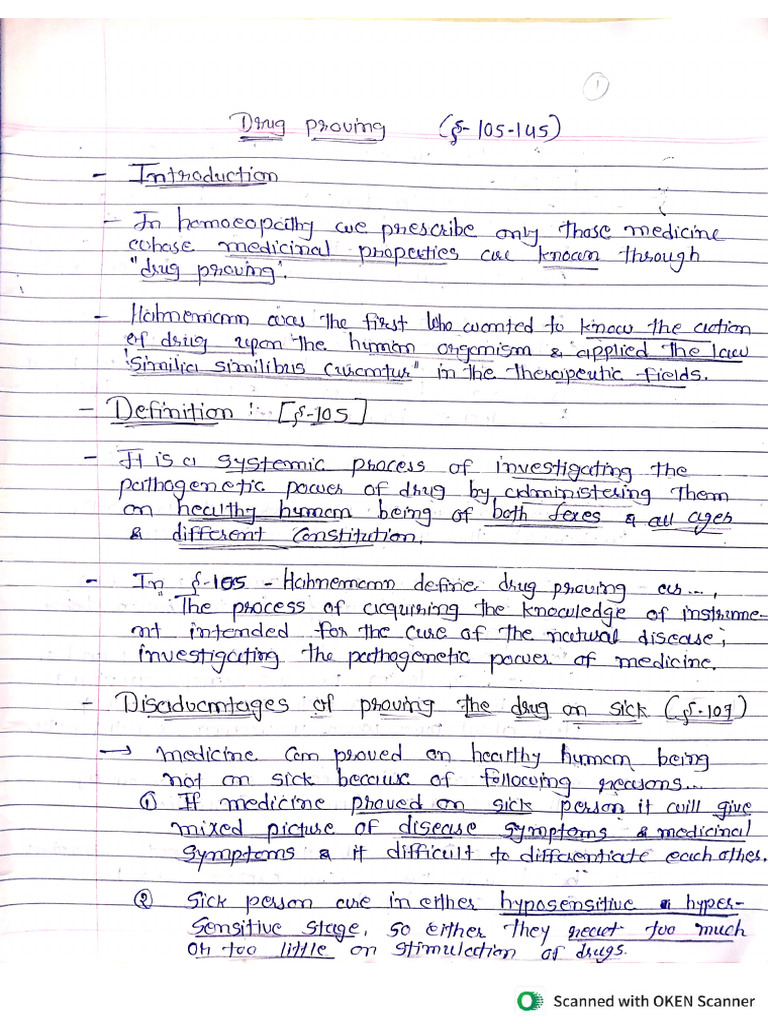 1
Drug proving (§-105-145)
- Introduction
- In homoeopathy we prescribe only those medicine
whose medicinal properties are known through
"drug proving".
- Hahnemann was the first who wanted to know the action
of drug upon the human organism & applied the law
'Similia similibus curantur" in the therapeutic fields.
- Definition :- [§-105]
- It is a systemic process of investigating the
pathogenetic power of drug by administering them
on healthy human being of both sexes & all ages
& different constitution.
- In §-105 - Hahnemann define drug proving as...,
The process of acquiring the knowledge of instrume-
nt intended for the cure of the natural disease;
investigating the pathogenetic power of medicine.
- Disadvantages of proving the drug on sick (§-107)
→ medicine can proved on hearthy human being
not on sick because of following reasons...
① If medicine proved on sick person it will give
mixed picture of disease symptoms & medicinal
symptoms & it difficult to differentiate each other.
② Sick person are in either hyposensitive & hyper-
sensitive stage, so either they react too much
or too little on stimulation of drugs.
Scanned with OKEN Scanner